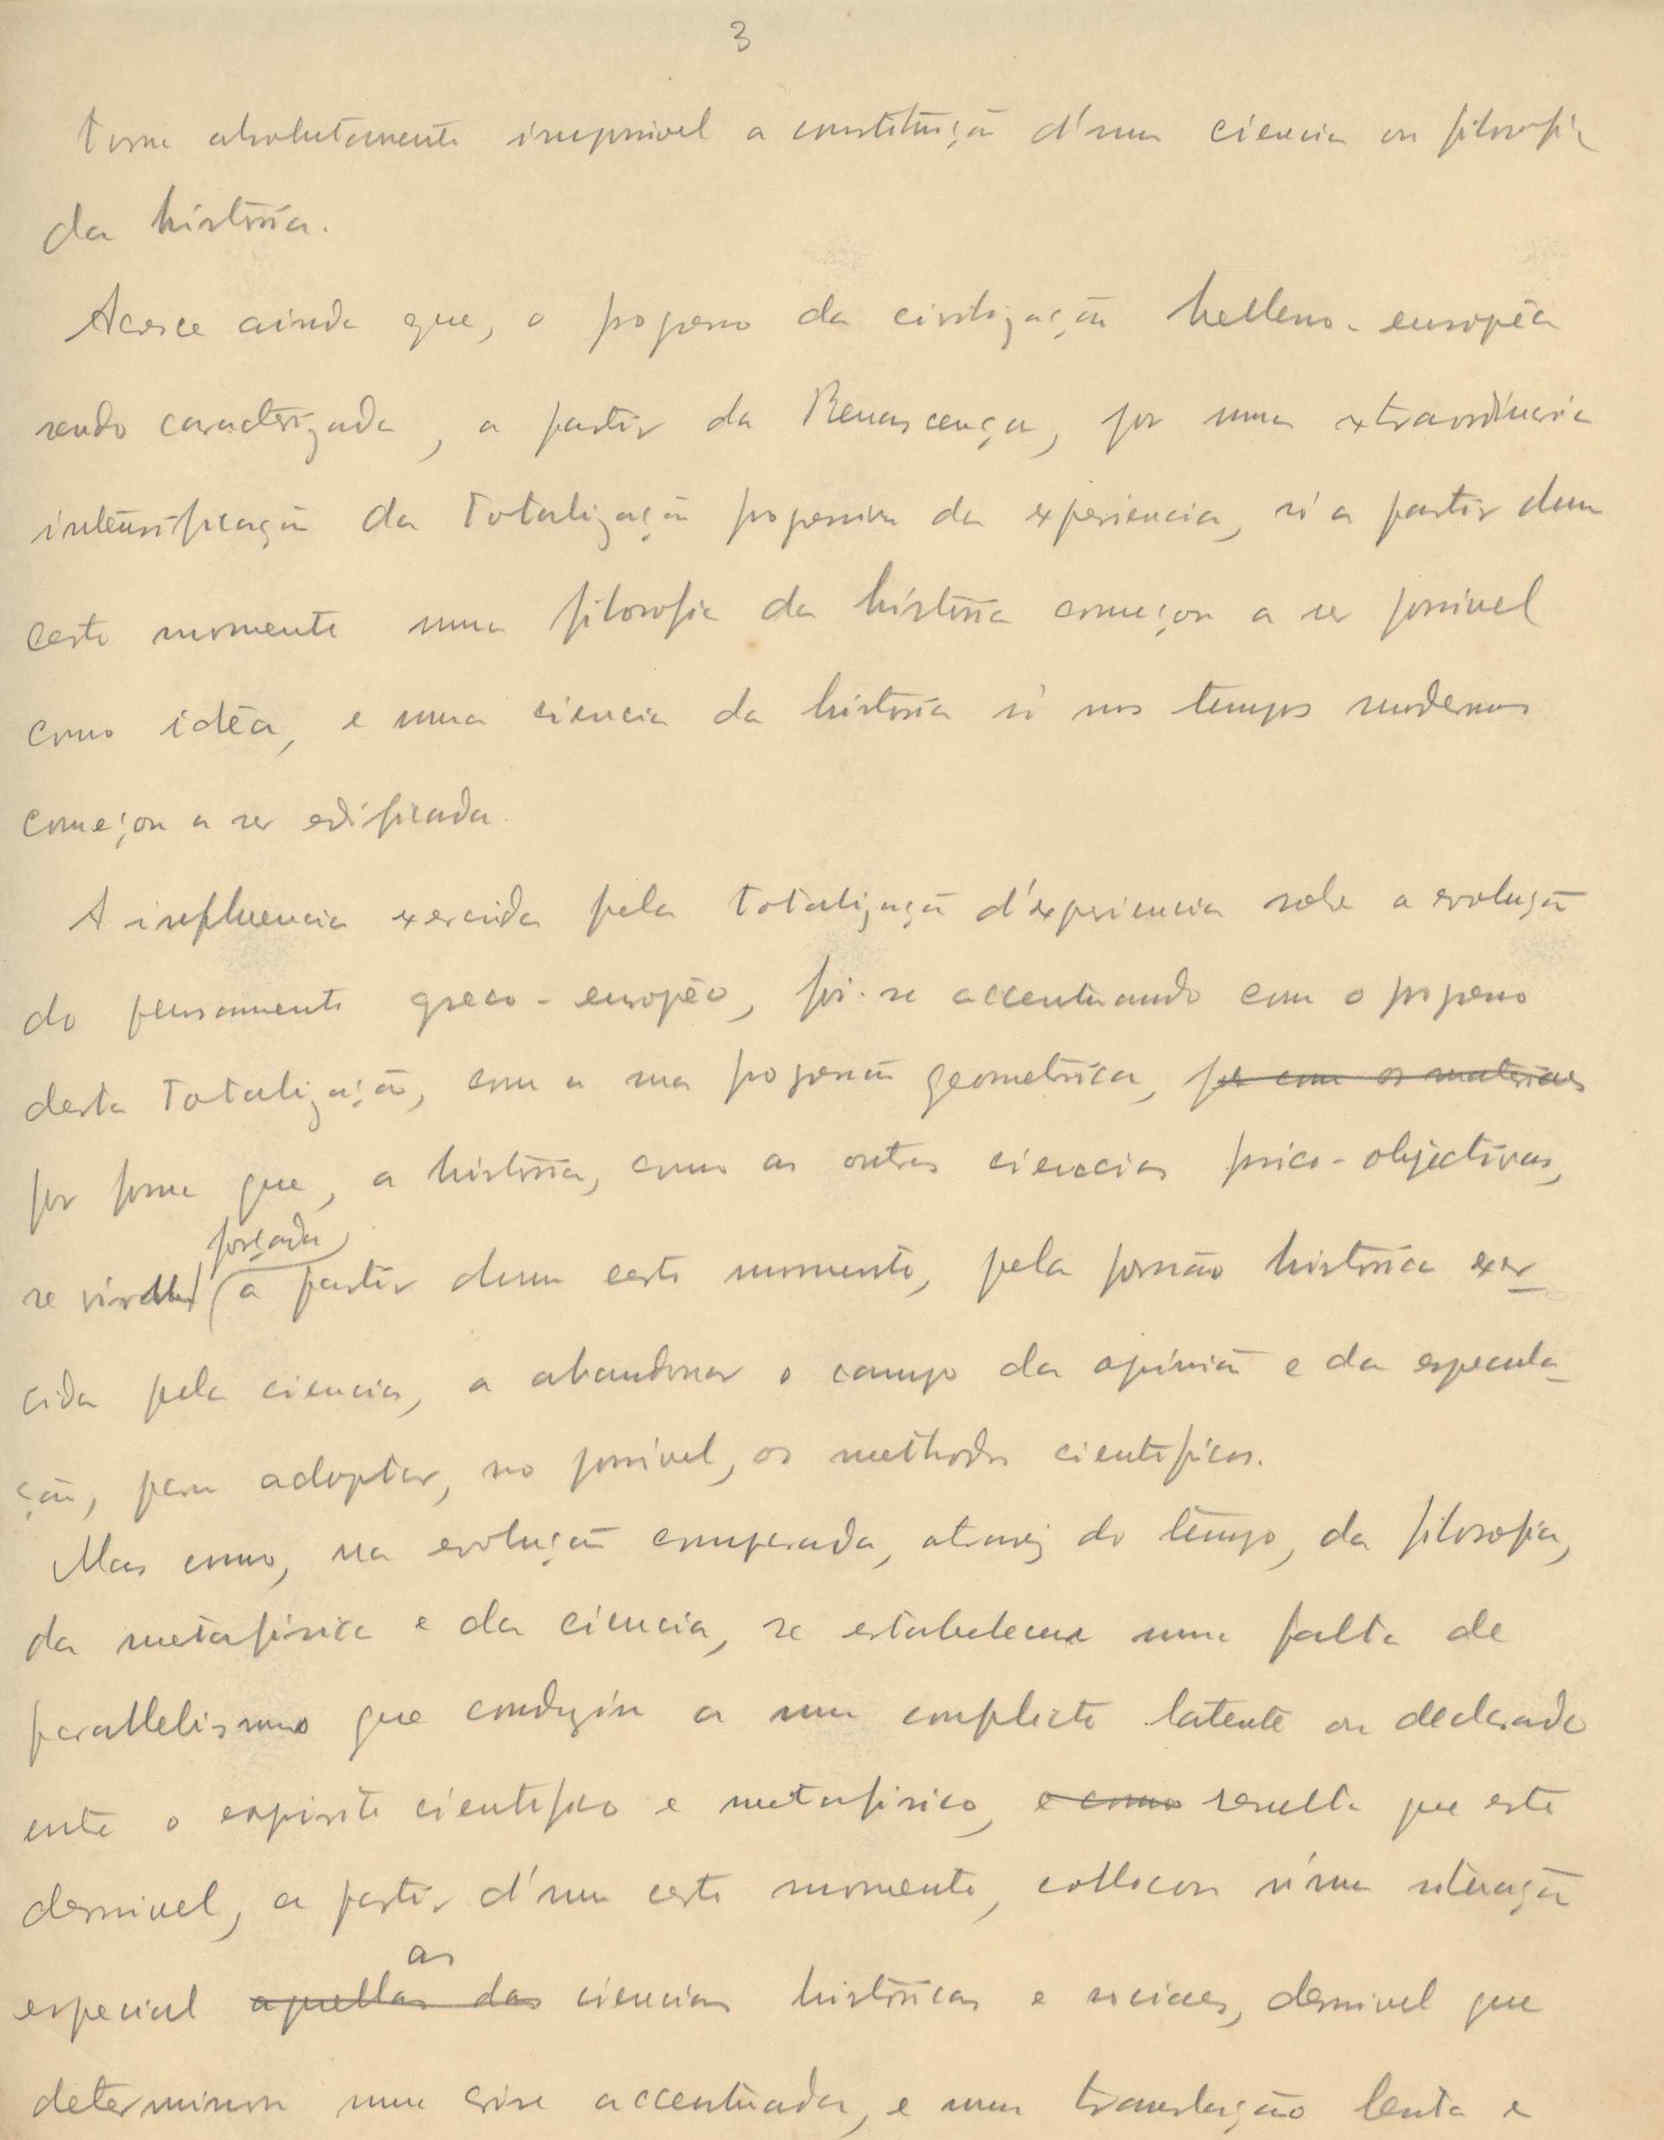 3
torna absolutamente impossivel a constituição d'uma ciencia ou filosofia
da história.
Acresce ainda que, o progresso da civilização helleno-européa
sendo caracterizada, a partir da Renascença, por uma extraordinaria
intensificação da totalização progressiva da experiencia, só a partir dum
certo momento uma filosofia da história começou a ser possivel
como idéa, e uma ciencia da história só nos tempos modernos
começou a ser edificada.
A influencia exercida pela totalização d'experiencia sobre a evolução
do pensamento greco-européo, foi-se accentuando com o progresso
desta totalização, com a sua progressão geometrica, por com os materiaes
por forma que, a história, como as outras ciencias psico-objectivas,
forçada
se viu a partir dum certo momento, pela pressão história exer-
cida pela ciencia, a abandonar o campo da opinião e da especula-
ção, para adoptar, no possivel, os methodos cientificos.
Mas como, na evolução comparada, atravez do tempo, da filosofia,
da metafisica e da ciencia, se estabeleceu uma falta de
parallelismo que conduziu a um conflicto latente ou declarado
entre o espirito cientifico e metafisico, e como resulta que este
desnivel, a partir d'um certo momento, collocou n'uma situação
as
especial aquellas das ciencias históricas e sociaes, desnivel que
determinou uma crise accentuada, e uma translação lenta e